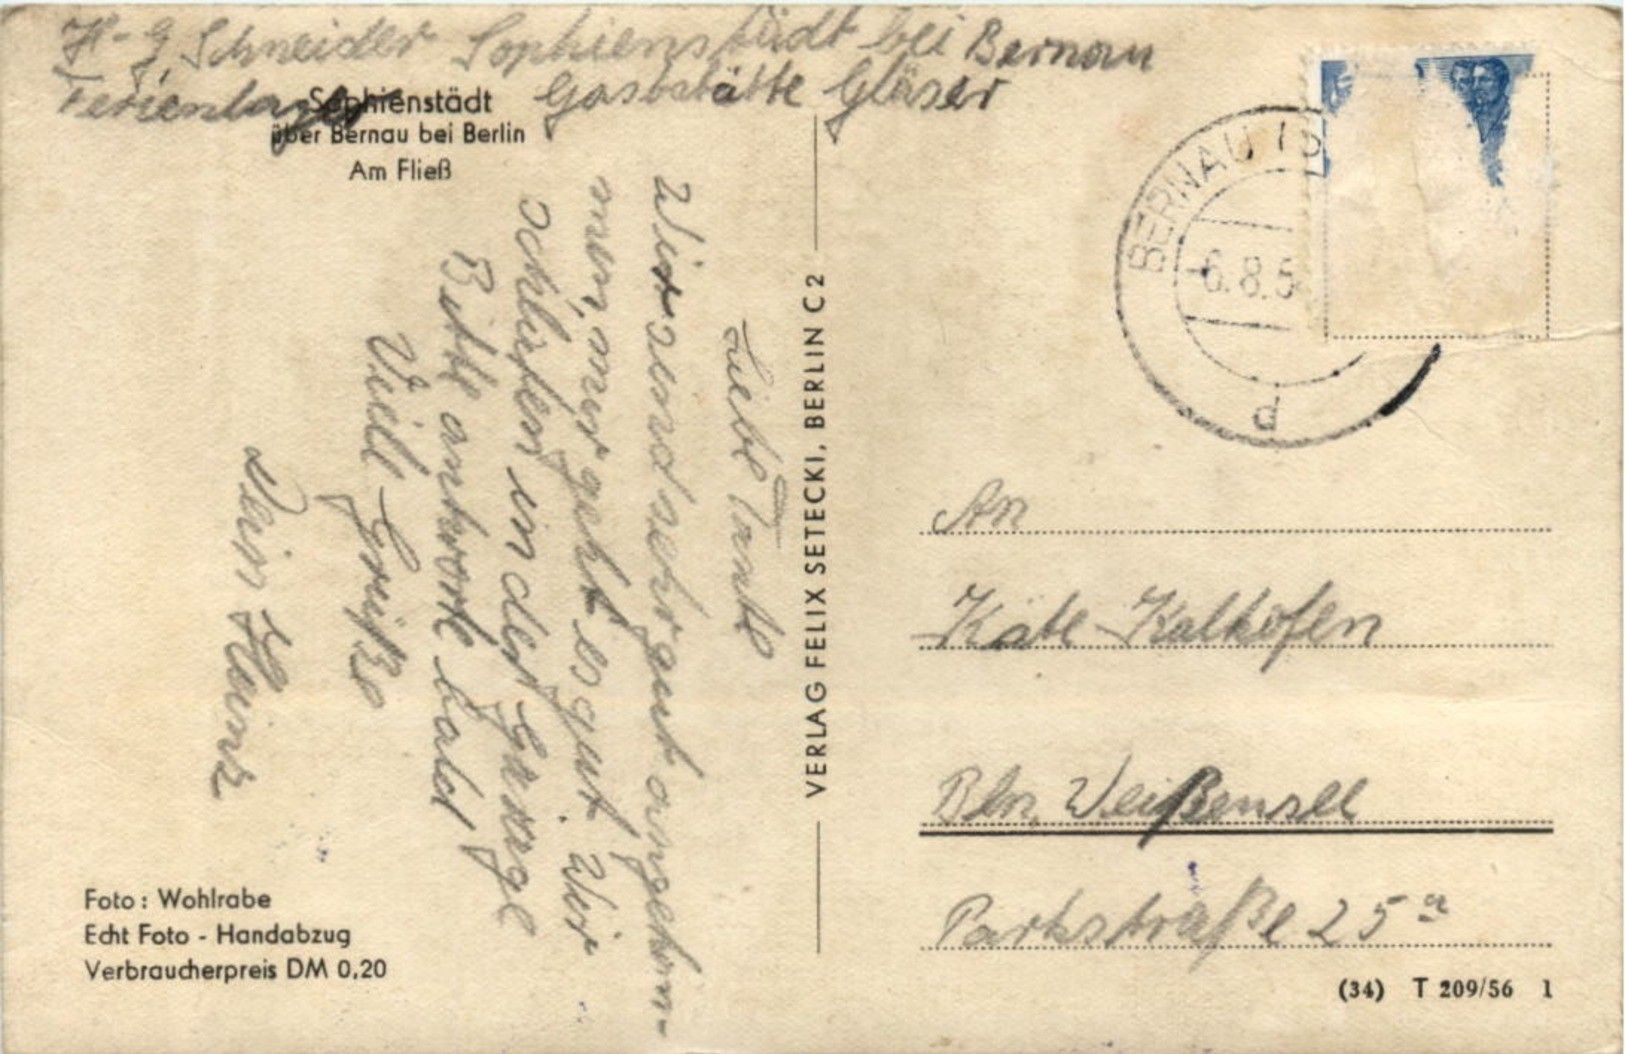 H-G Schneider Sophienstädt bei Bernau
Ferienlager Gaststätte Gläser
Sophienstädt
über Bernau bei Berlin
Am Fließ
Liebe Tante
Wir sind sehr gut angekom-
men, mir geht es gut. Wir
schlafen in der Garage
Bitte antworte bald
Viele Grüße
Dein Heinz
Foto: Wohlrabe
Echt Foto - Handabzug
Verbraucherpreis DM 0,20
VERLAG FELIX SETECKI, BERLIN C 2
BERNAU (B
-6.8.5
d
An
Käte Kalkofen
Bln. Weißensee
Parkstraße 25 a
(34) T 209/56 1